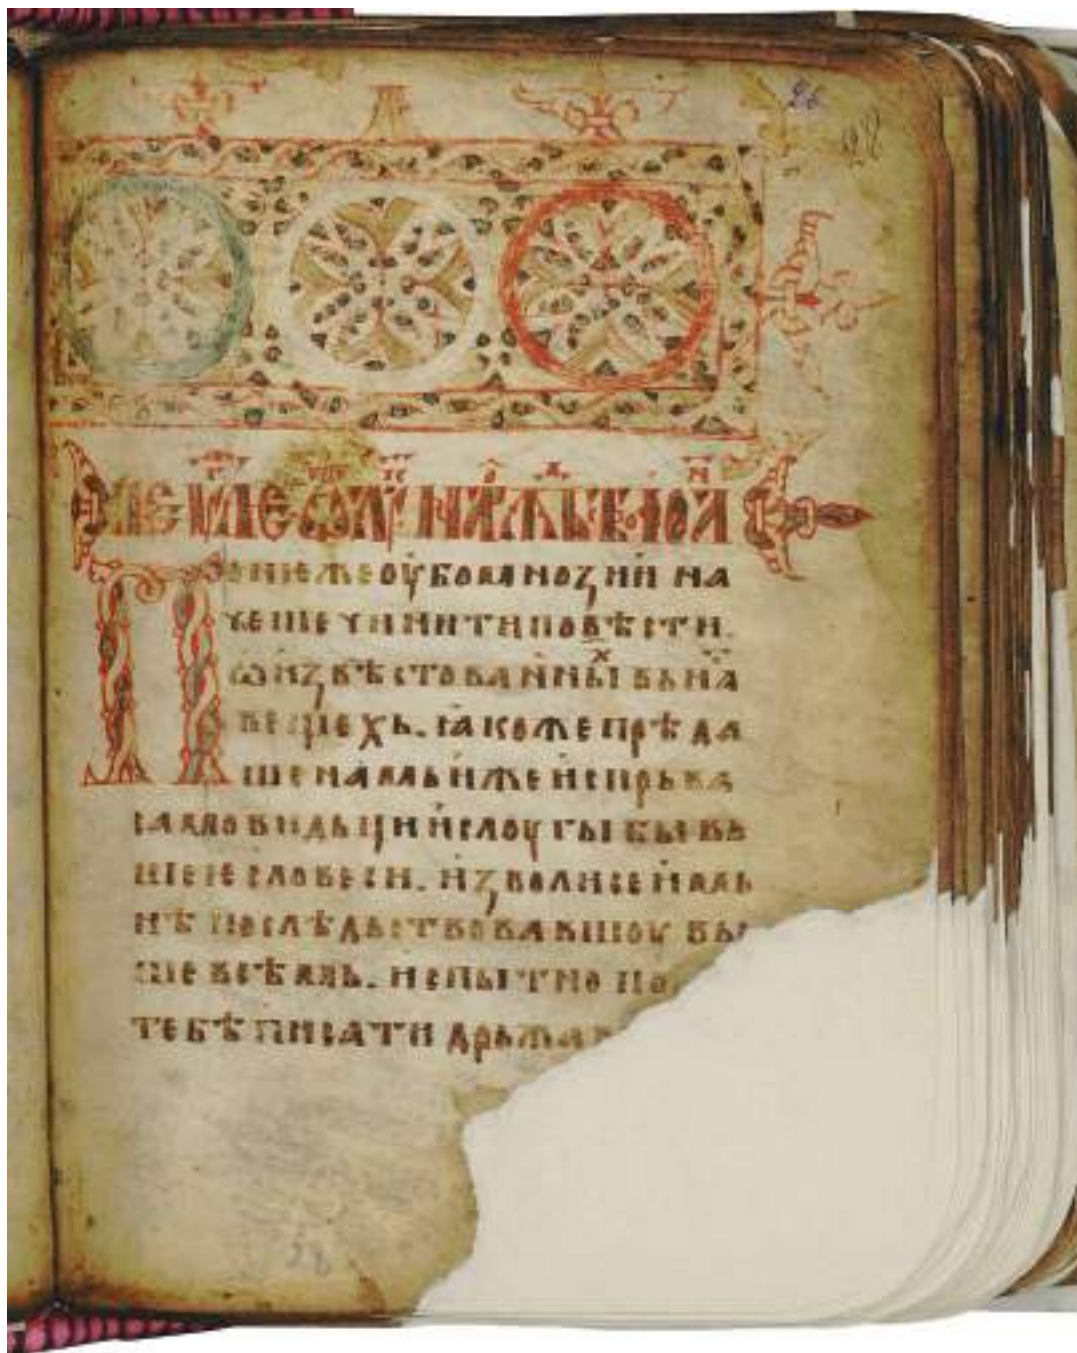 28
Понѥже оубо мнозїи на
чеше чинити повѣсти.
ѡ извѣстованныⷯ вь на
вещехь. ꙗкоже прѣда
ше намь иже испрьва
самовидьци и слоугы бывь
ше словеси. изволисе и мь
нѣ послѣдьствовавшоу вы
ше всѣмь. испытно по
тебѣ писати дрьжав